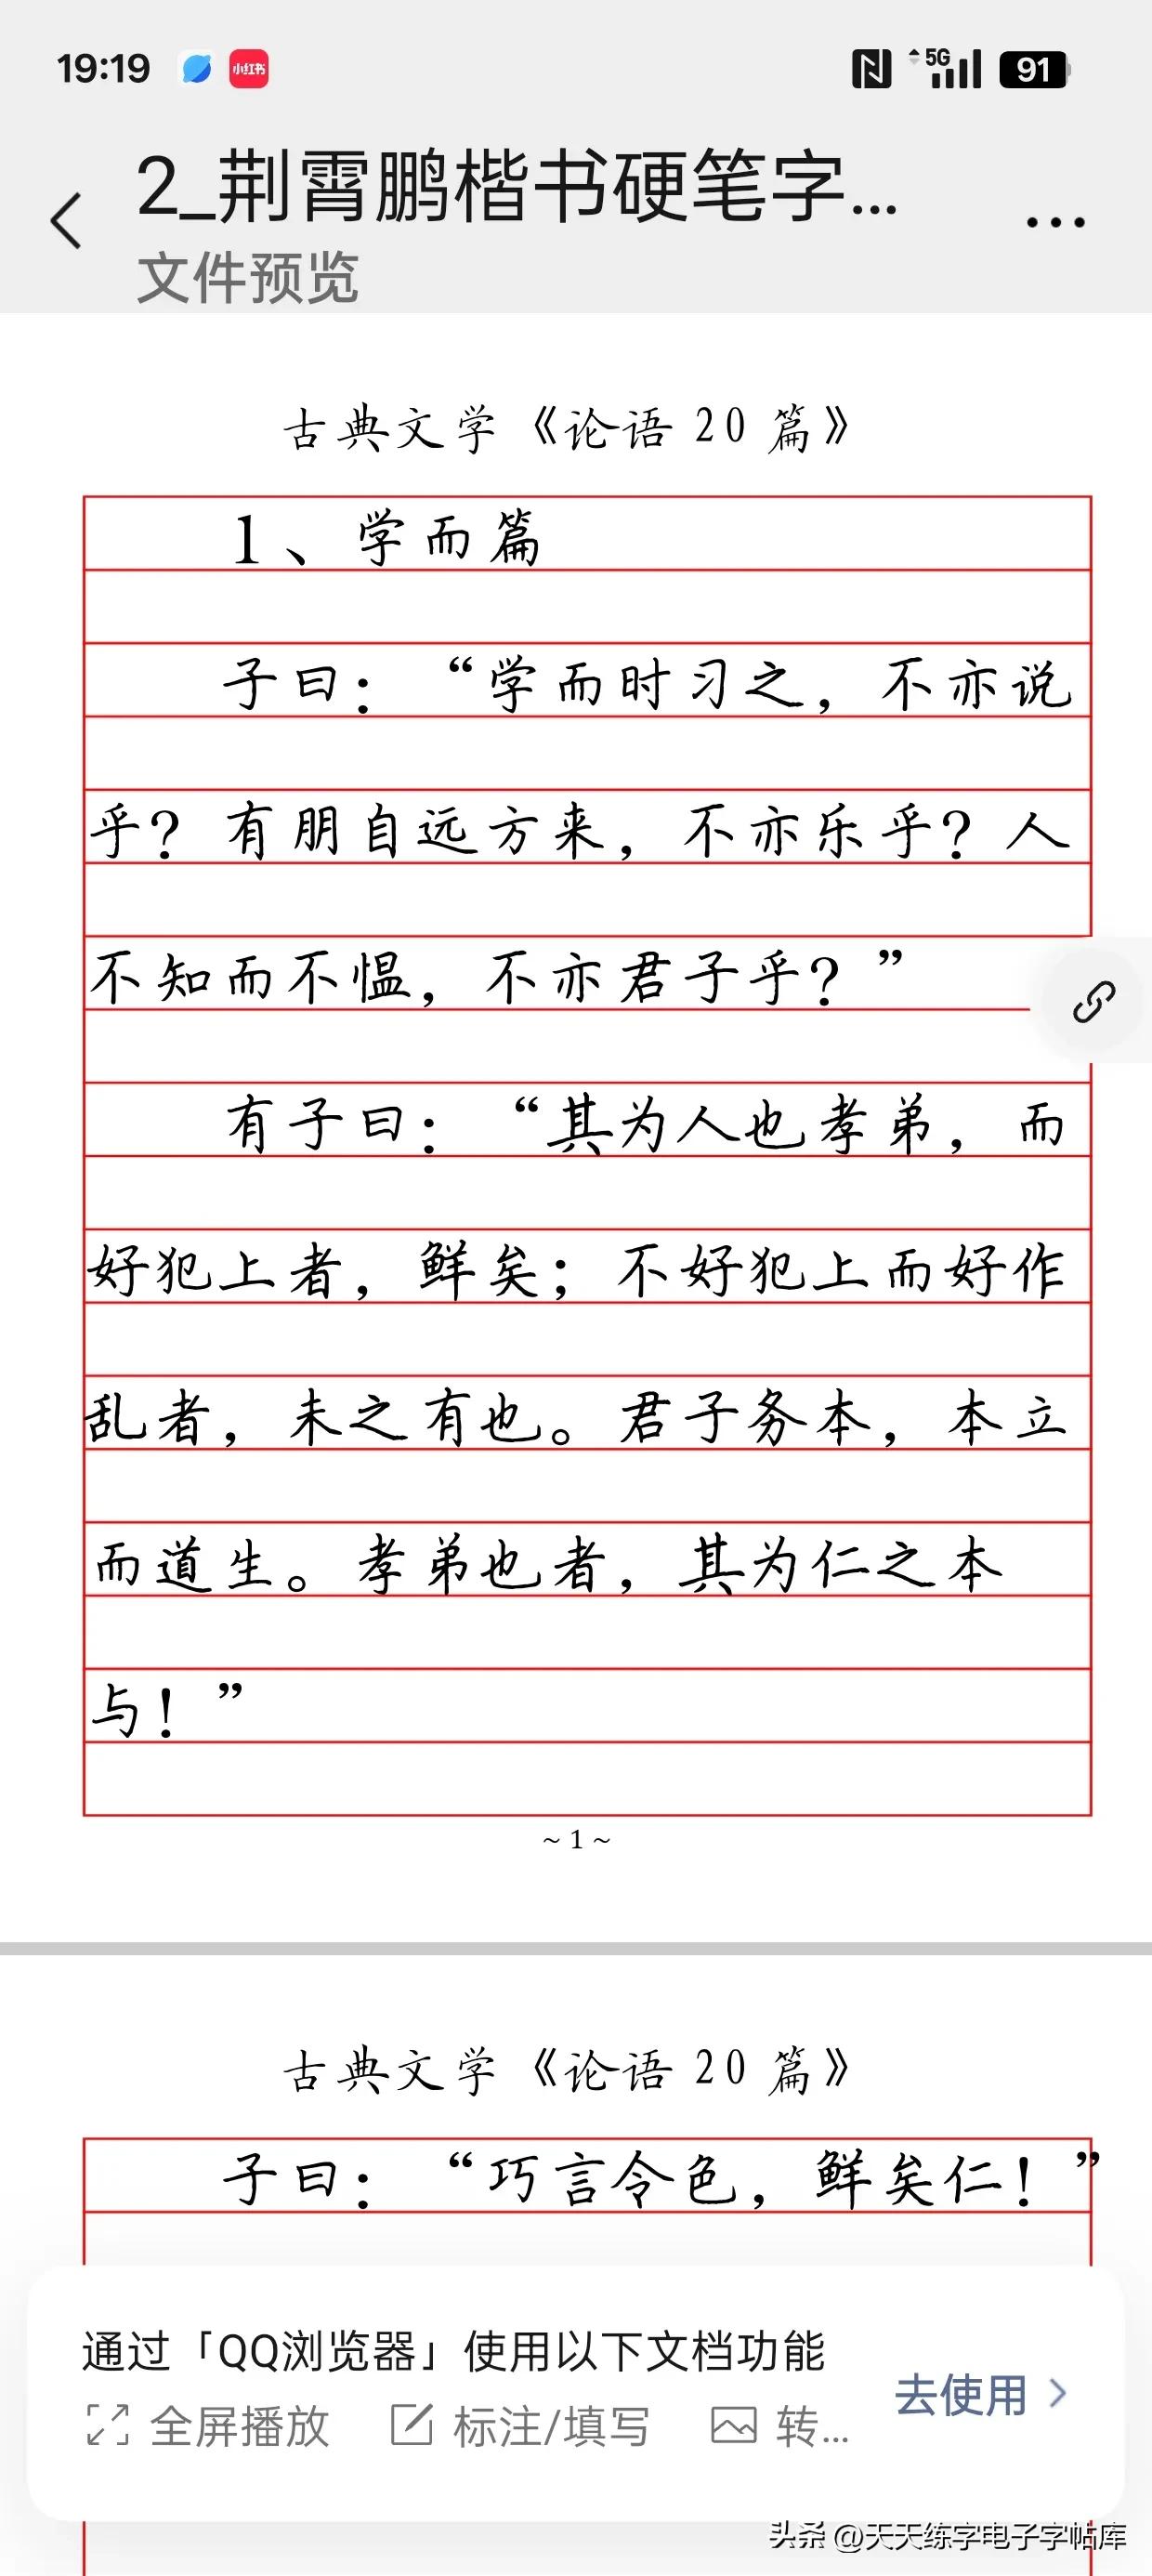 19:19
小红书
5G
91
2_荆霄鹏楷书硬笔字...
文件预览
古典文学《论语20篇》
1、学而篇
子曰：“学而时习之，不亦说
乎？有朋自远方来，不亦乐乎？人
不知而不愠，不亦君子乎？”
有子曰：“其为人也孝弟，而
好犯上者，鲜矣；不好犯上而好作
乱者，未之有也。君子务本，本立
而道生。孝弟也者，其为仁之本
与！”
~ 1 ~
古典文学《论语20篇》
子曰：“巧言令色，鲜矣仁！”
通过「QQ浏览器」使用以下文档功能
去使用
全屏播放 标注/填写 转...
头条 @天天练字电子字帖库